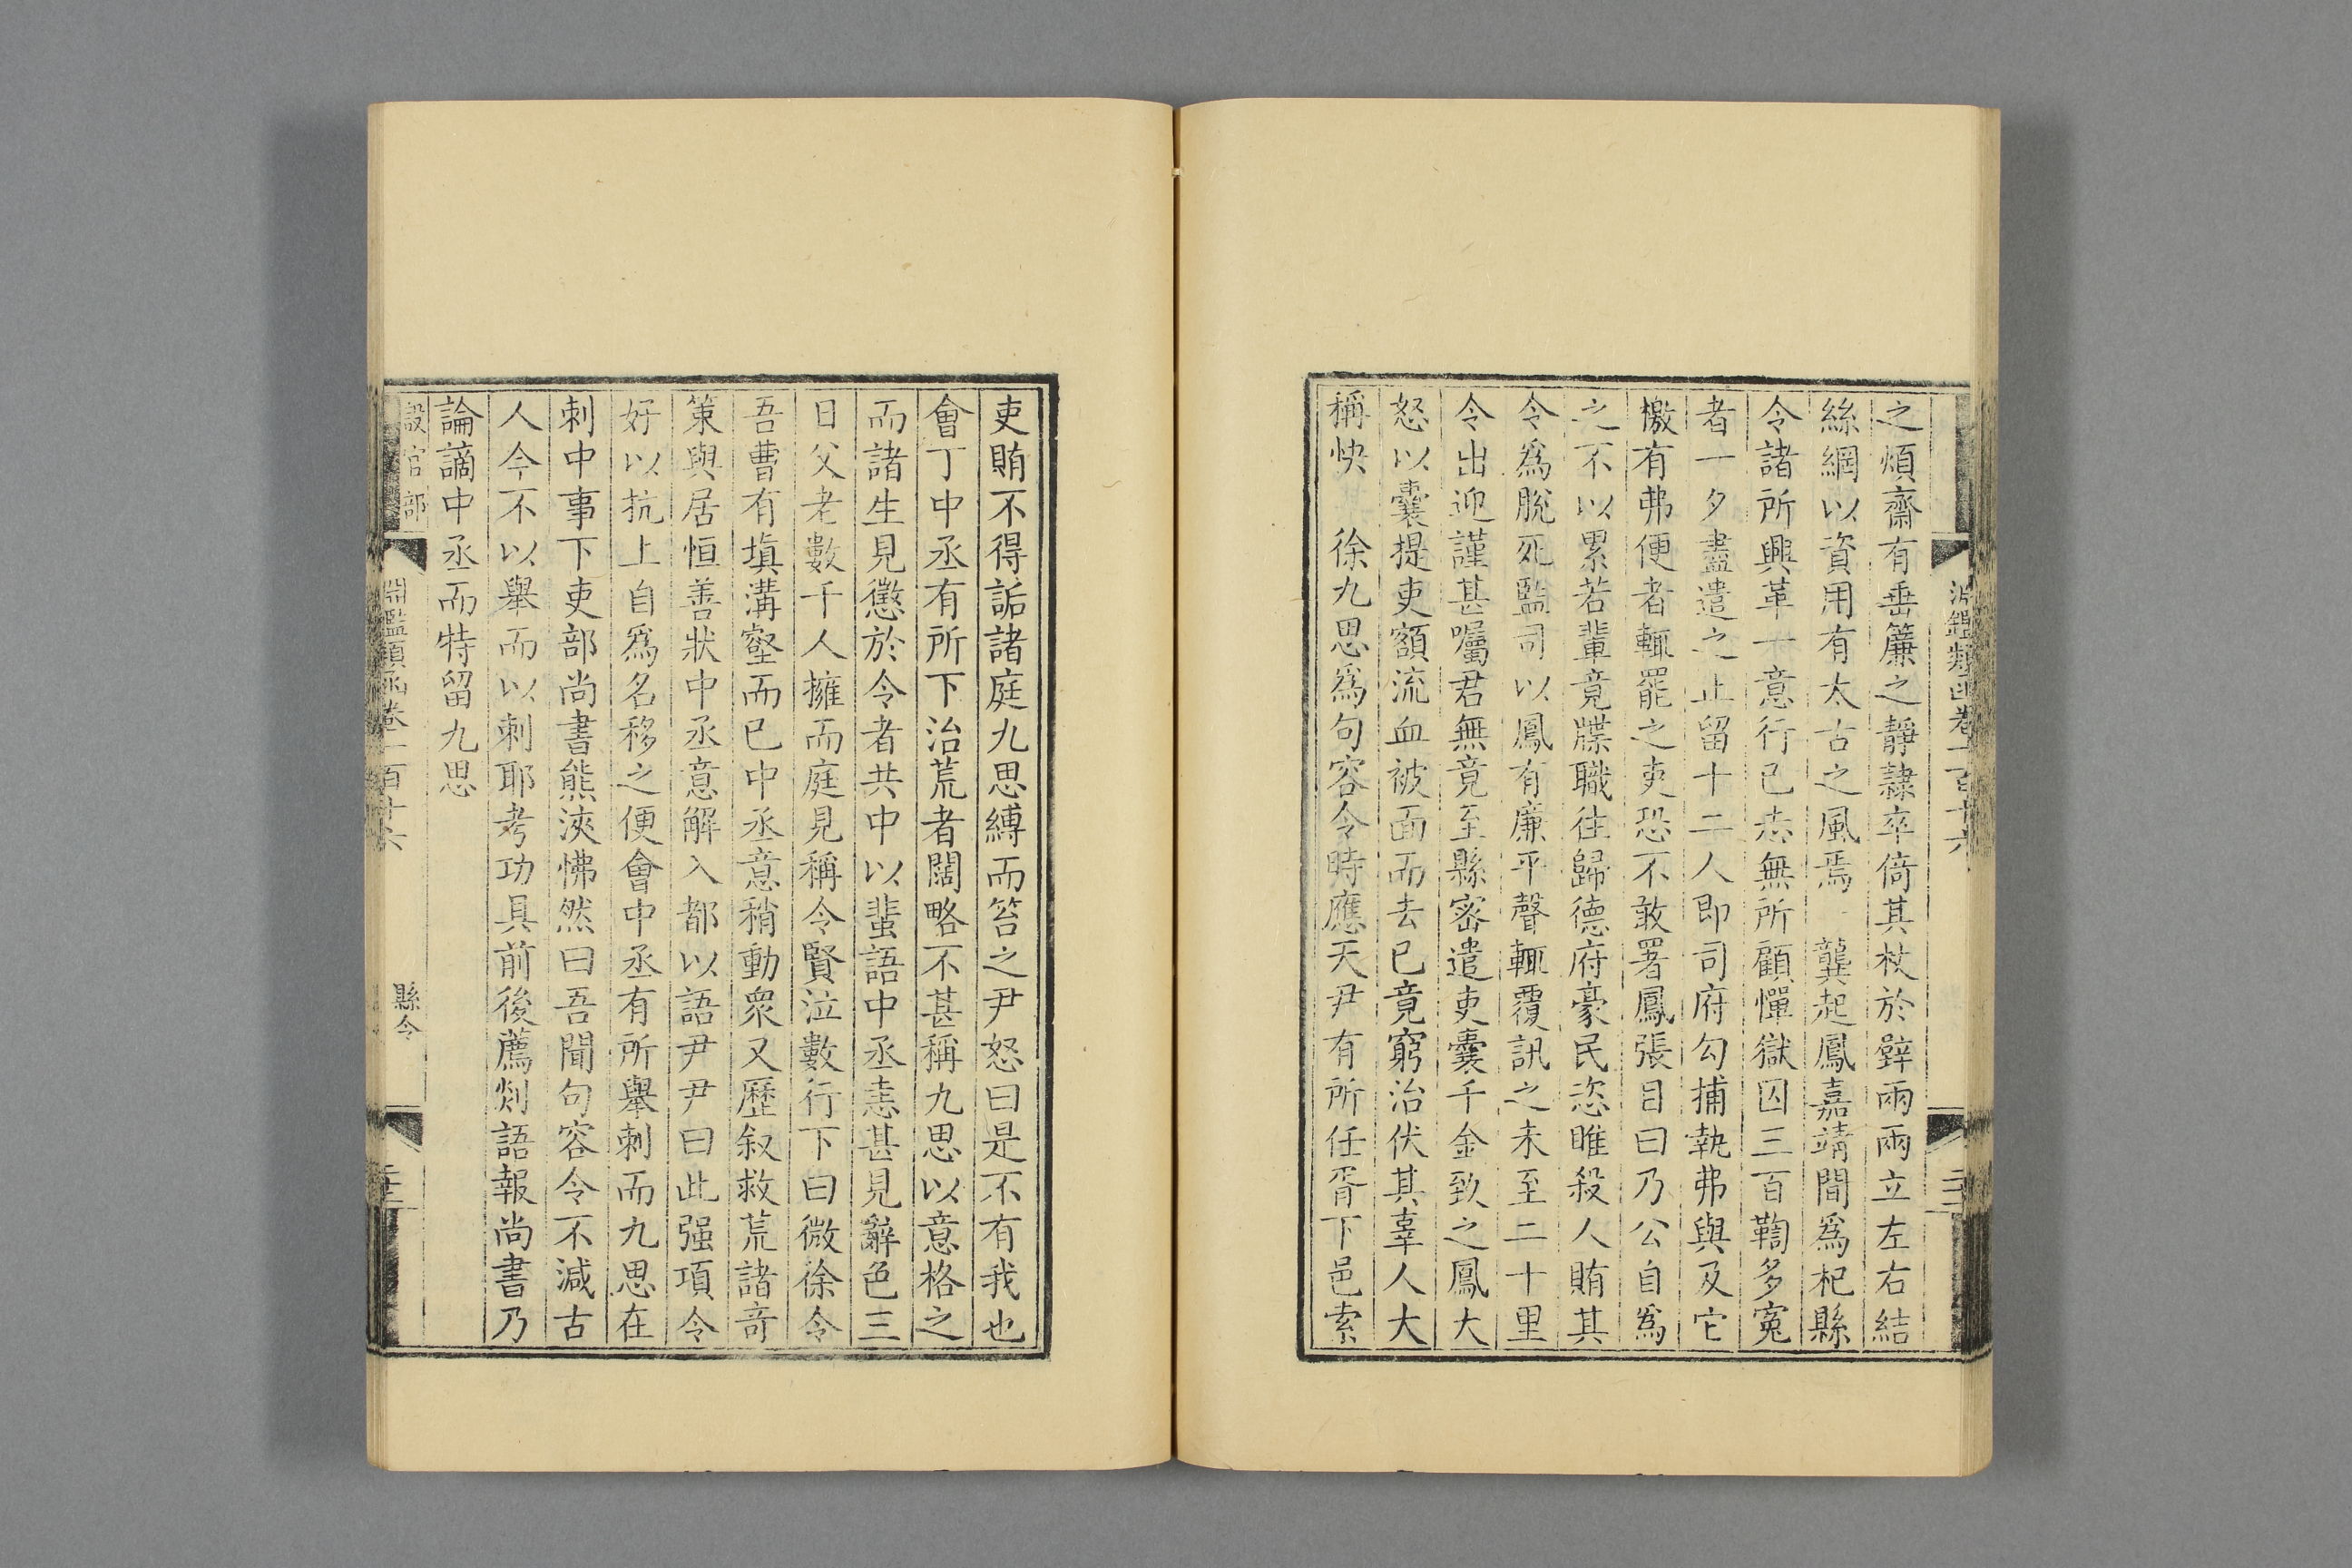 淵鑑類函卷一百十六
之煩齋有垂簾之靜隸卒倚其杖於壁兩兩立左右結
絲網以資用有太古之風焉　龔起鳳嘉靖間爲杞縣
令諸所興革一意行已志無所顧憚獄囚三百鞫多寃
者一夕盡遣之止留十二人即司府勾捕執弗與及它
檄有弗便者輒罷之吏恐不敢署鳳張目曰乃公自爲
之不以累若輩竟牒職徃歸德府豪民恣睢殺人賄其
令爲脫死監司以鳳有廉平聲輒覆訊之未至二十里
令出迎謹甚囑君無竟至縣密遣吏囊千金致之鳳大
怒以囊提吏額流血被面而去已竟窮治伏其辜人大
稱快　徐九思爲句容令時應天尹有所任胥下邑索
吏賄不得詬諸庭九思縛而笞之尹怒曰是不有我也
會丁中丞有所下治荒者闊略不甚稱九思以意格之
而諸生見懲於令者共中以蜚語中丞恚甚見辭色三
日父老數千人擁而庭見稱令賢泣數行下曰微徐令
吾曹有塡溝壑而已中丞意稍動衆又歷叙救荒諸奇
策與居恒善狀中丞意解入都以語尹尹曰此强項令
好以抗上自爲名移之便會中丞有所舉刺而九思在
刺中事下吏部尚書熊浹怫然曰吾聞句容令不減古
人今不以舉而以刺耶考功具前後薦剡語報尚書乃
論謫中丞而特留九思
設官部
淵鑑類函卷一百十六
縣令